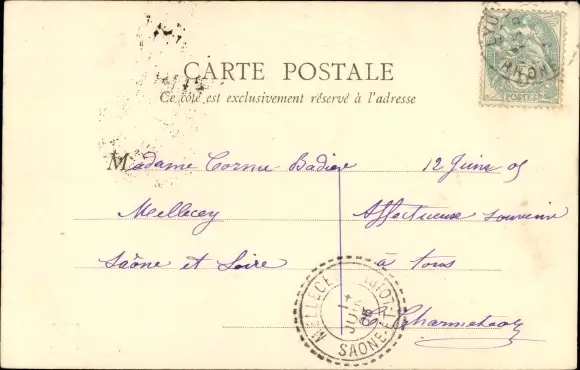 CARTE POSTALE
Ce côté est exclusivement réservé à l'adresse
Madame Cornu Badier
Mellecey
Saône et Loire
12 Juin 05
Affectueux souvenir
à tous
RHONE
POSTES
MELLECEY
SAONE-ET-L